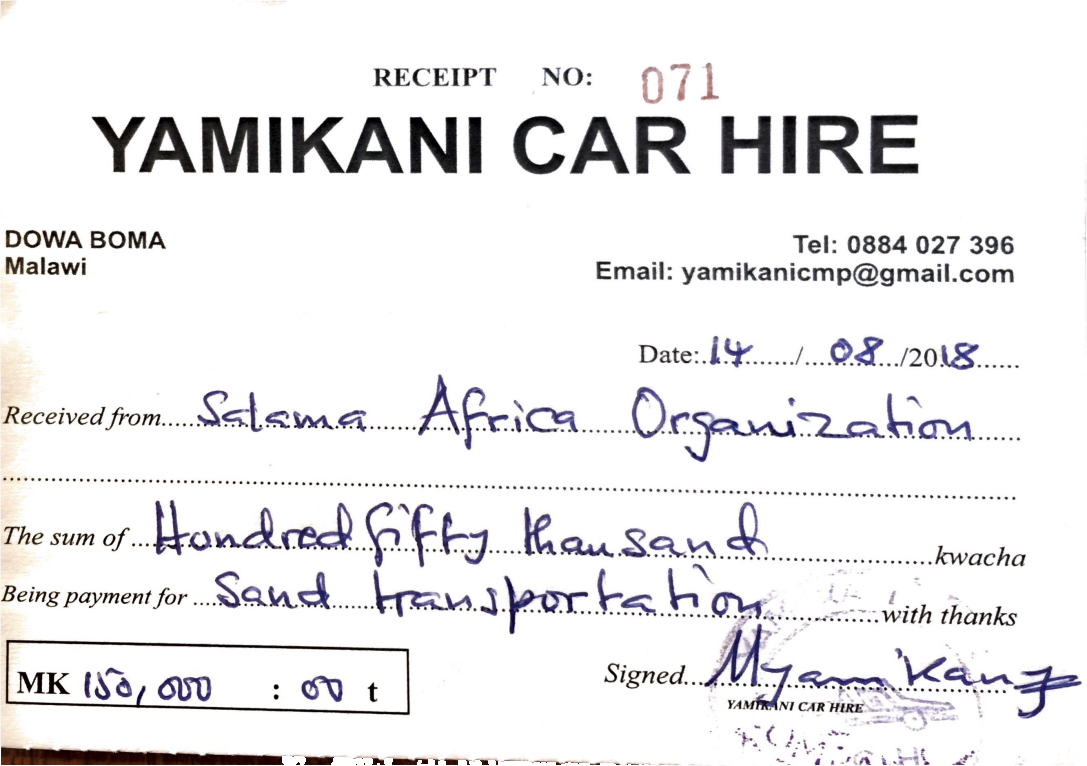 RECEIPT NO: 071
YAMIKANI CAR HIRE
DOWA BOMA
Malawi
Tel: 0884 027 396
Email: yamikanicmp@gmail.com
Date: 14 / 08 /2018
Received from Salama Africa Organization
The sum of Hundred fifty thousand kwacha
Being payment for Sand transportation with thanks
MK 150,000 : 00 t
Signed Myamikani
YAMIKANI CAR HIRE